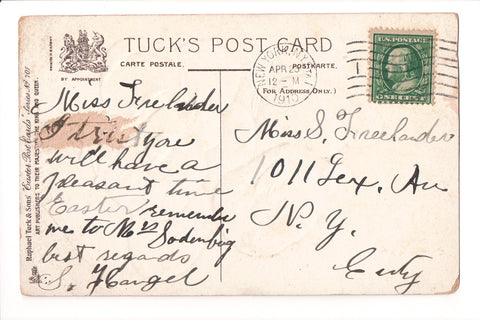 TUCK'S POST CARD
CARTE POSTALE. POSTKARTE.
BY APPOINTMENT
(FOR ADDRESS ONLY.)
NEW YORK, N.Y.
APR 23
12 - M
1910
U.S. POSTAGE
ONE CENT
Raphael Tuck & Sons' "Easter" Post Cards Series No 101
ART PUBLISHERS TO THEIR MAJESTIES THE KING AND QUEEN.
Miss Freelander
I you
will have a
pleasant time
Easter remember
me to Mrs Sodenbig
best regards
S. Hangel
Miss S. Freelander
1011 Lex. Av
N. Y.
City